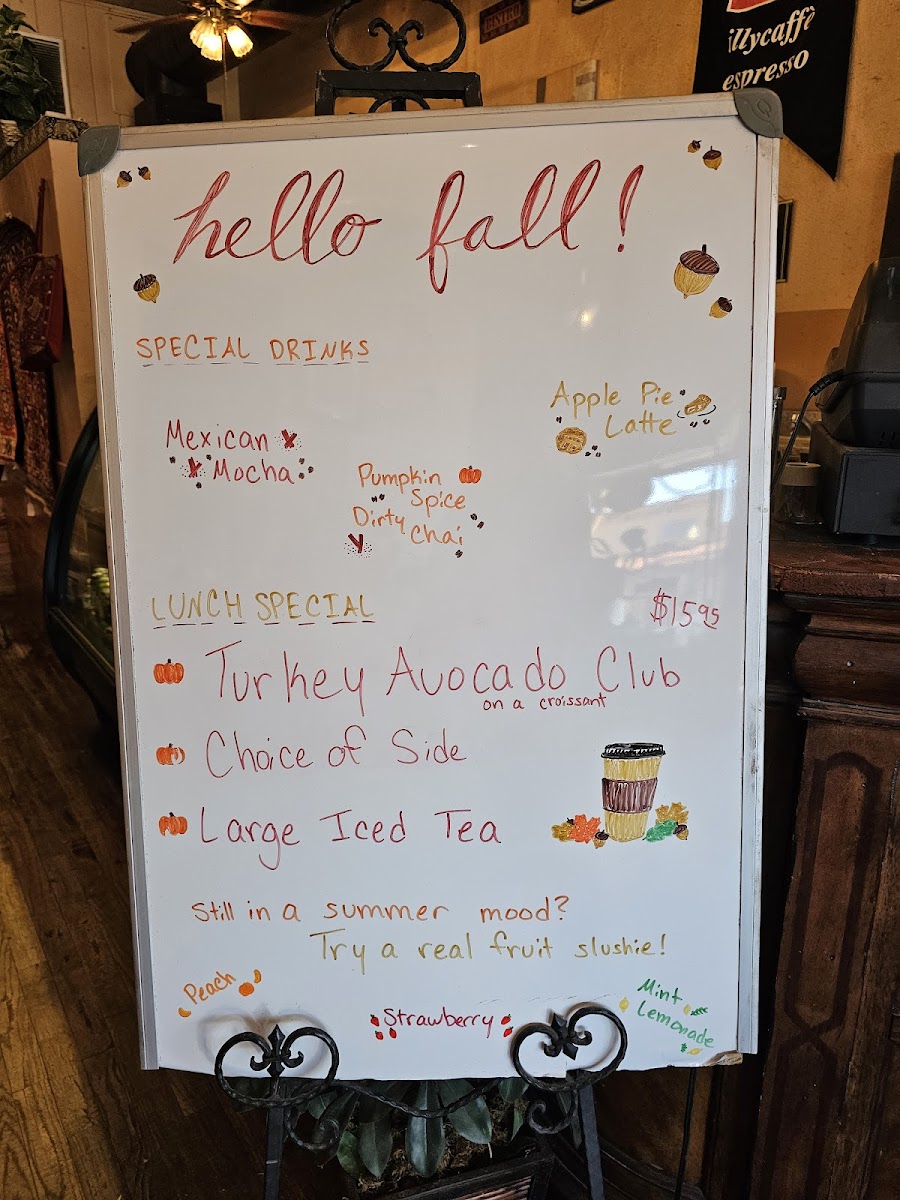 BISTRO
illycaffè
espresso
hello fall!
SPECIAL DRINKS
Apple Pie
Latte
Mexican
Mocha
Pumpkin
Spice
Dirty
Chai
LUNCH SPECIAL
$15.95
Turkey Avocado Club
on a croissant
Choice of Side
Large Iced Tea
Still in a summer mood?
Try a real fruit slushie!
Peach
Strawberry
Mint
Lemonade